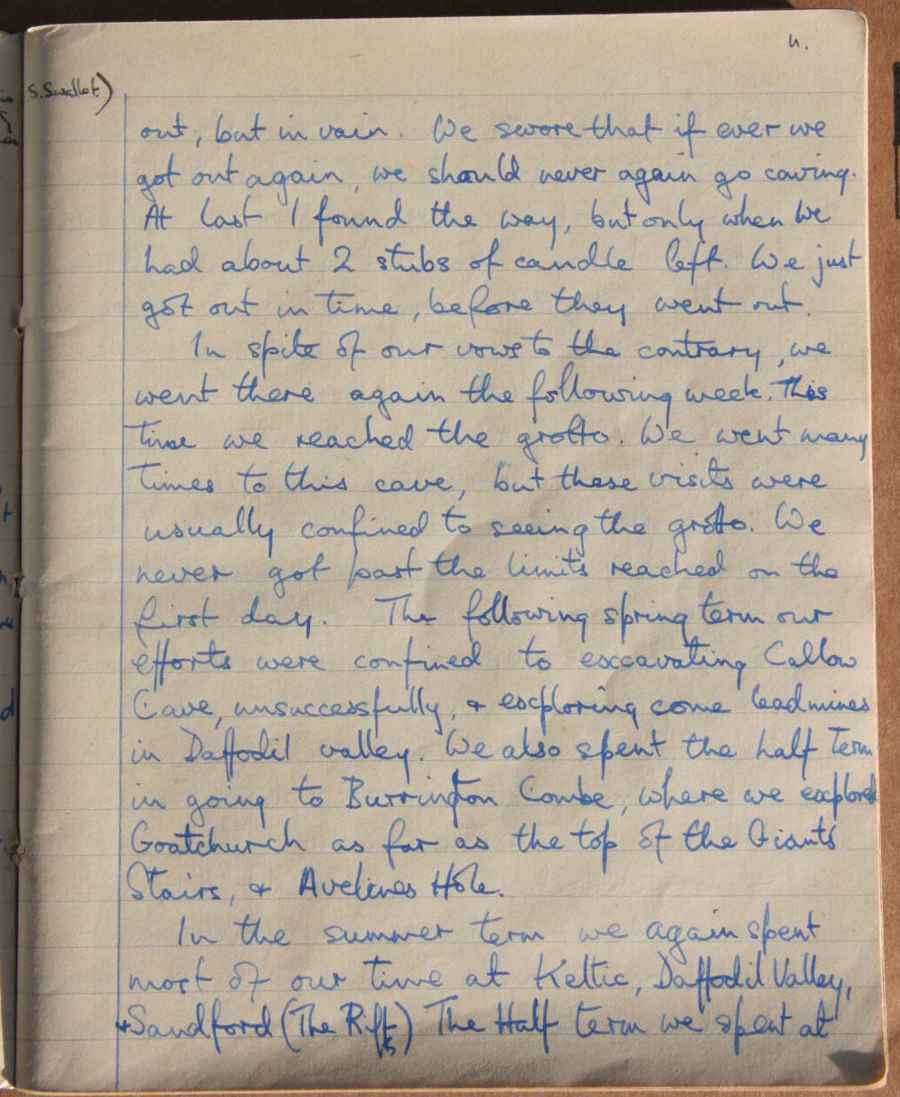 4.
S. Swallet)
out, but in vain. We swore that if ever we
got out again, we should never again go caving.
At last I found the way, but only when we
had about 2 stubs of candle left. We just
got out in time, before they went out.
In spite of our vows to the contrary, we
went there again the following week. This
time we reached the grotto. We went many
times to this cave, but these visits were
usually confined to seeing the grotto. We
never got past the limits reached on the
first day. The following spring term our
efforts were confined to excavating Callow
Cave, unsuccessfully, & exploring some leadmines
in Daffodil valley. We also spent the half Term
in going to Burrington Combe, where we explored
Goatchurch as far as the top of the Giants
Stairs, & Avelines Hole.
In the summer term we again spent
most of our time at Keltic, Daffodil Valley,
& Sandford (The Rift) The Half term we spent at